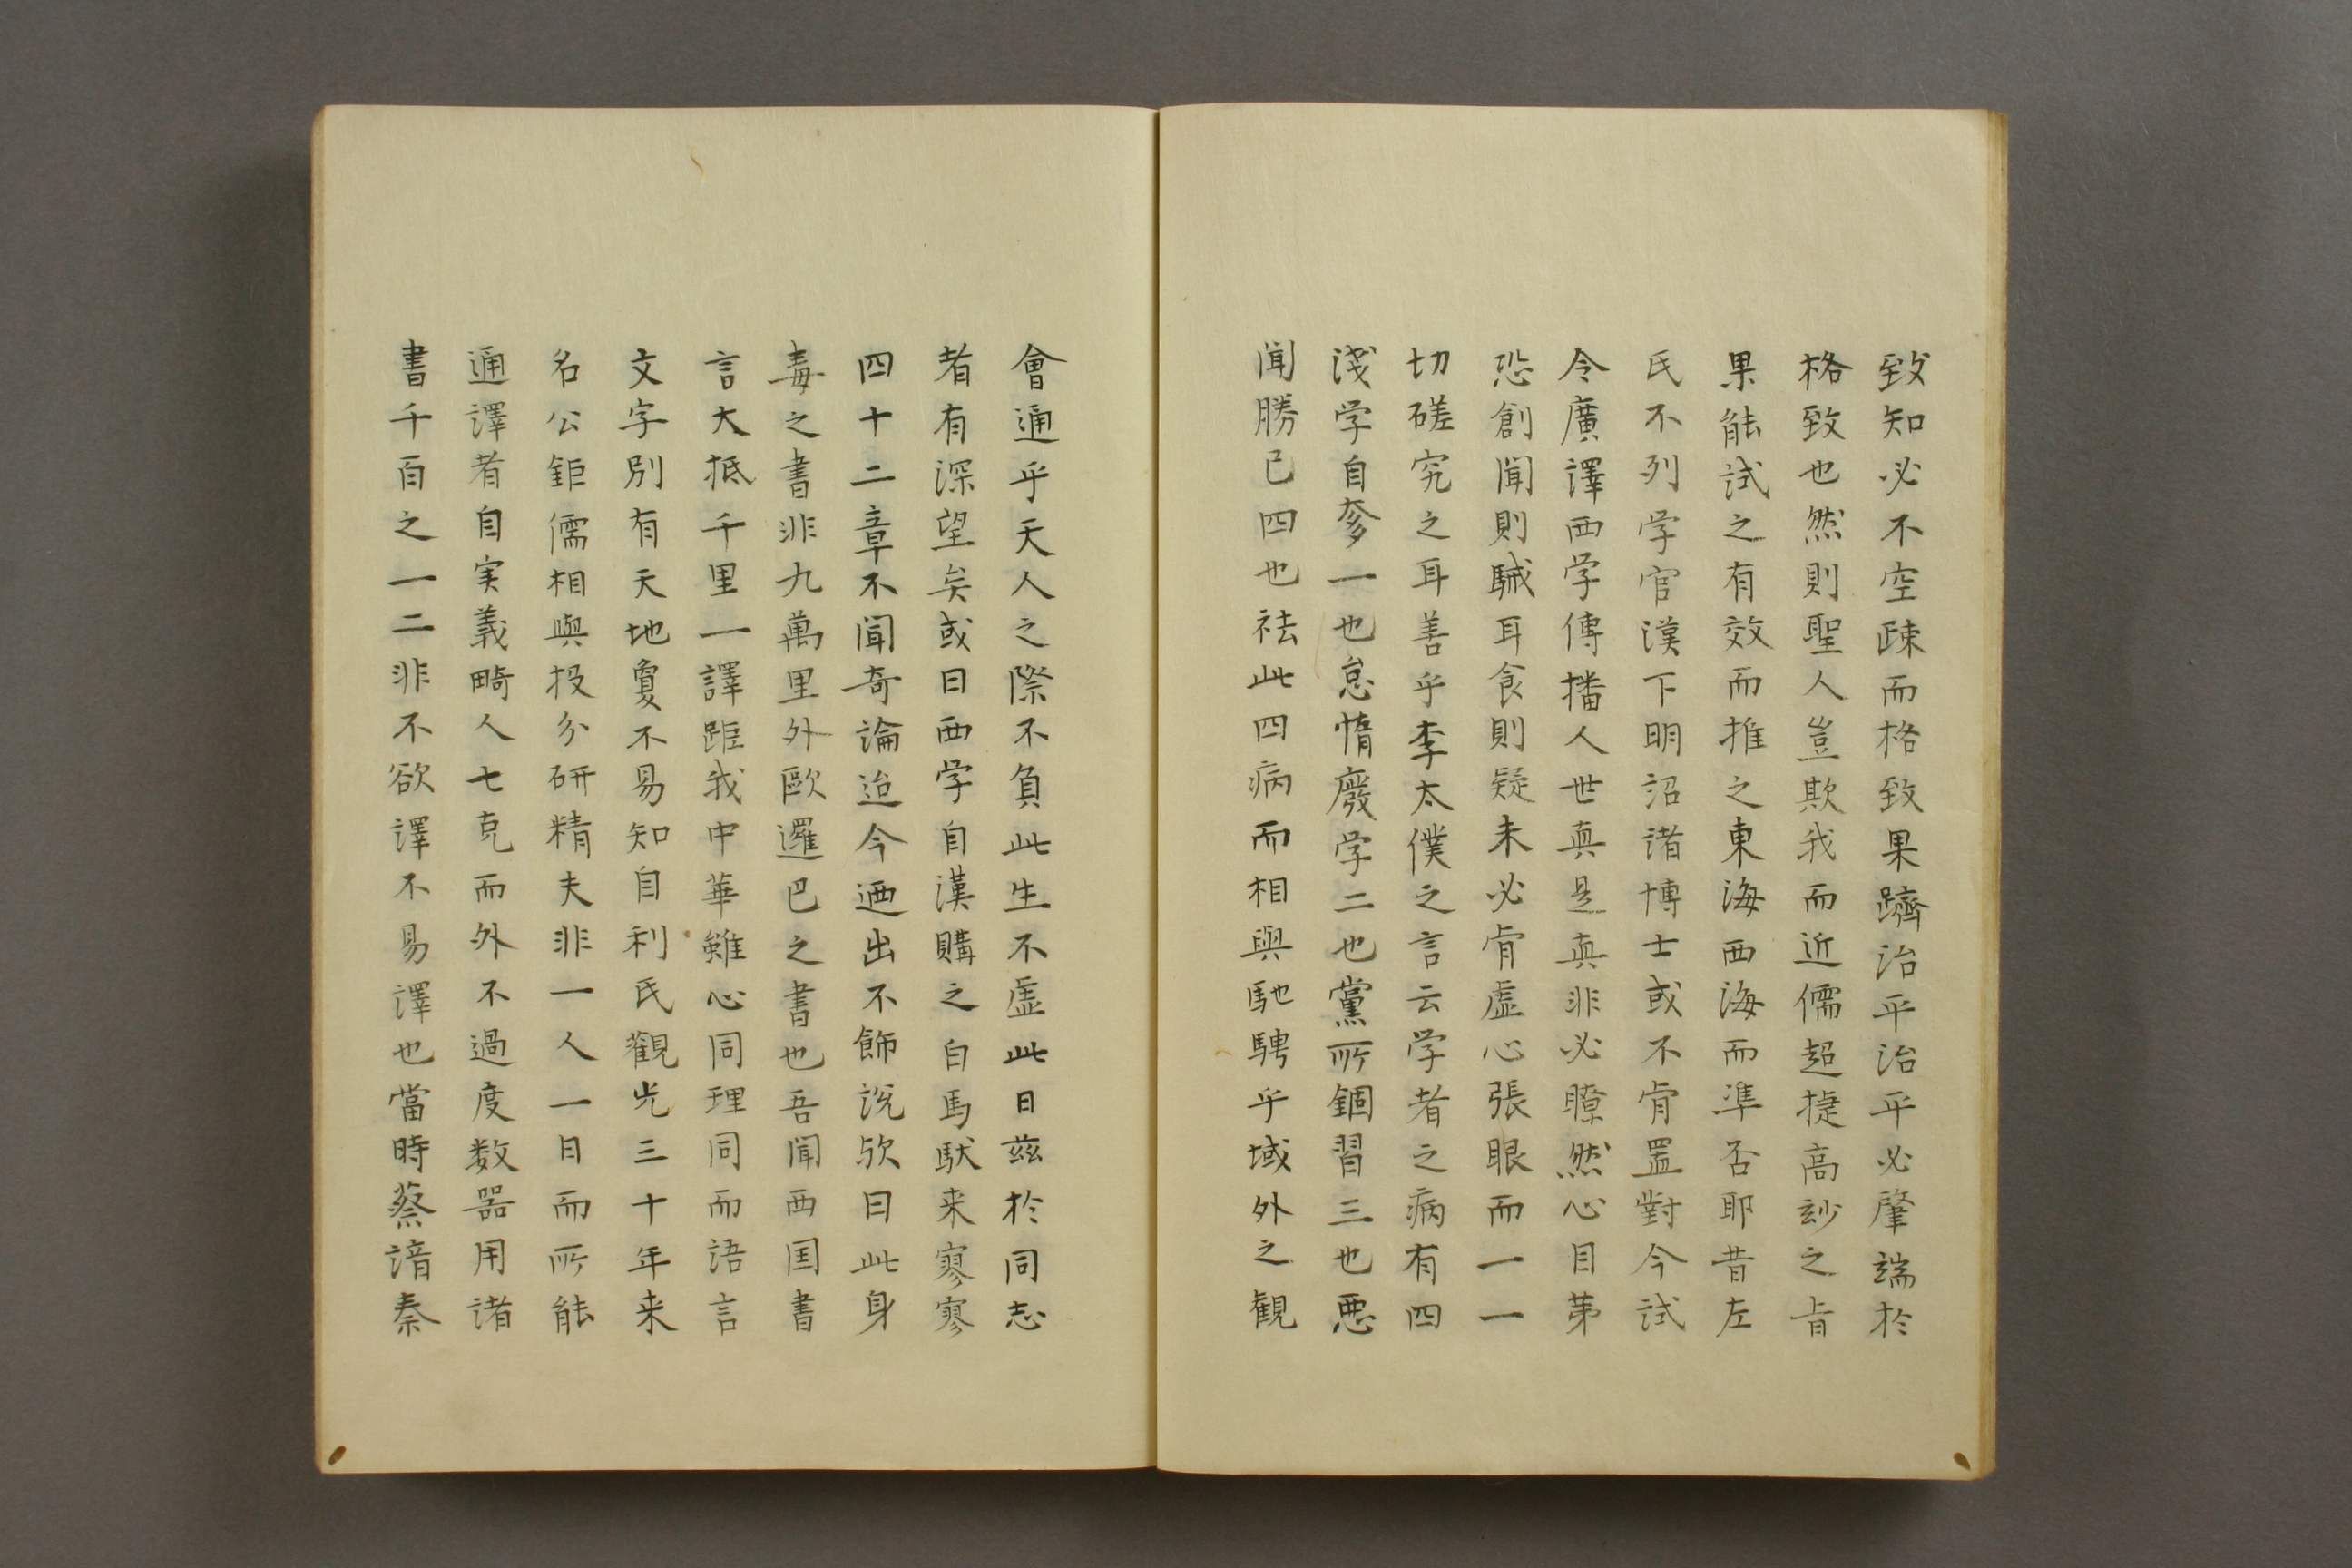 致知必不空疎而格致果躋治平治平必肇端於
格致也然則聖人豈欺我而近儒超捷高玅之㫖
果能試之有效而推之東海西海而準否耶昔左
氏不列学官漢下明詔諸博士或不肯置對今試
令廣譯西学傳播人世真是真非必瞭然心目第
恐創聞則駴耳食則疑未必肯虛心張眼而一一
切磋究之耳善乎李太僕之言云学者之病有四
淺学自奓一也怠惰廢学二也黨所錮習三也惡
聞勝已四也祛此四病而相與馳騁乎域外之観
會通乎天人之際不負此生不虛此日茲於同志
者有深望矣或曰西学自漢購之白馬馱来寥寥
四十二章不聞奇論迨今迺出不飾說欤曰此身
毒之書非九萬里外歐邏巴之書也吾聞西国書
言大抵千里一譯距我中華雖心同理同而語言
文字別有天地夐不易知自利氏觀光三十年来
名公鉅儒相與投分研精夫非一人一日而所能
通譯者自実義畸人七克而外不過度数器用諸
書千百之一二非不欲譯不易譯也當時蔡諳秦